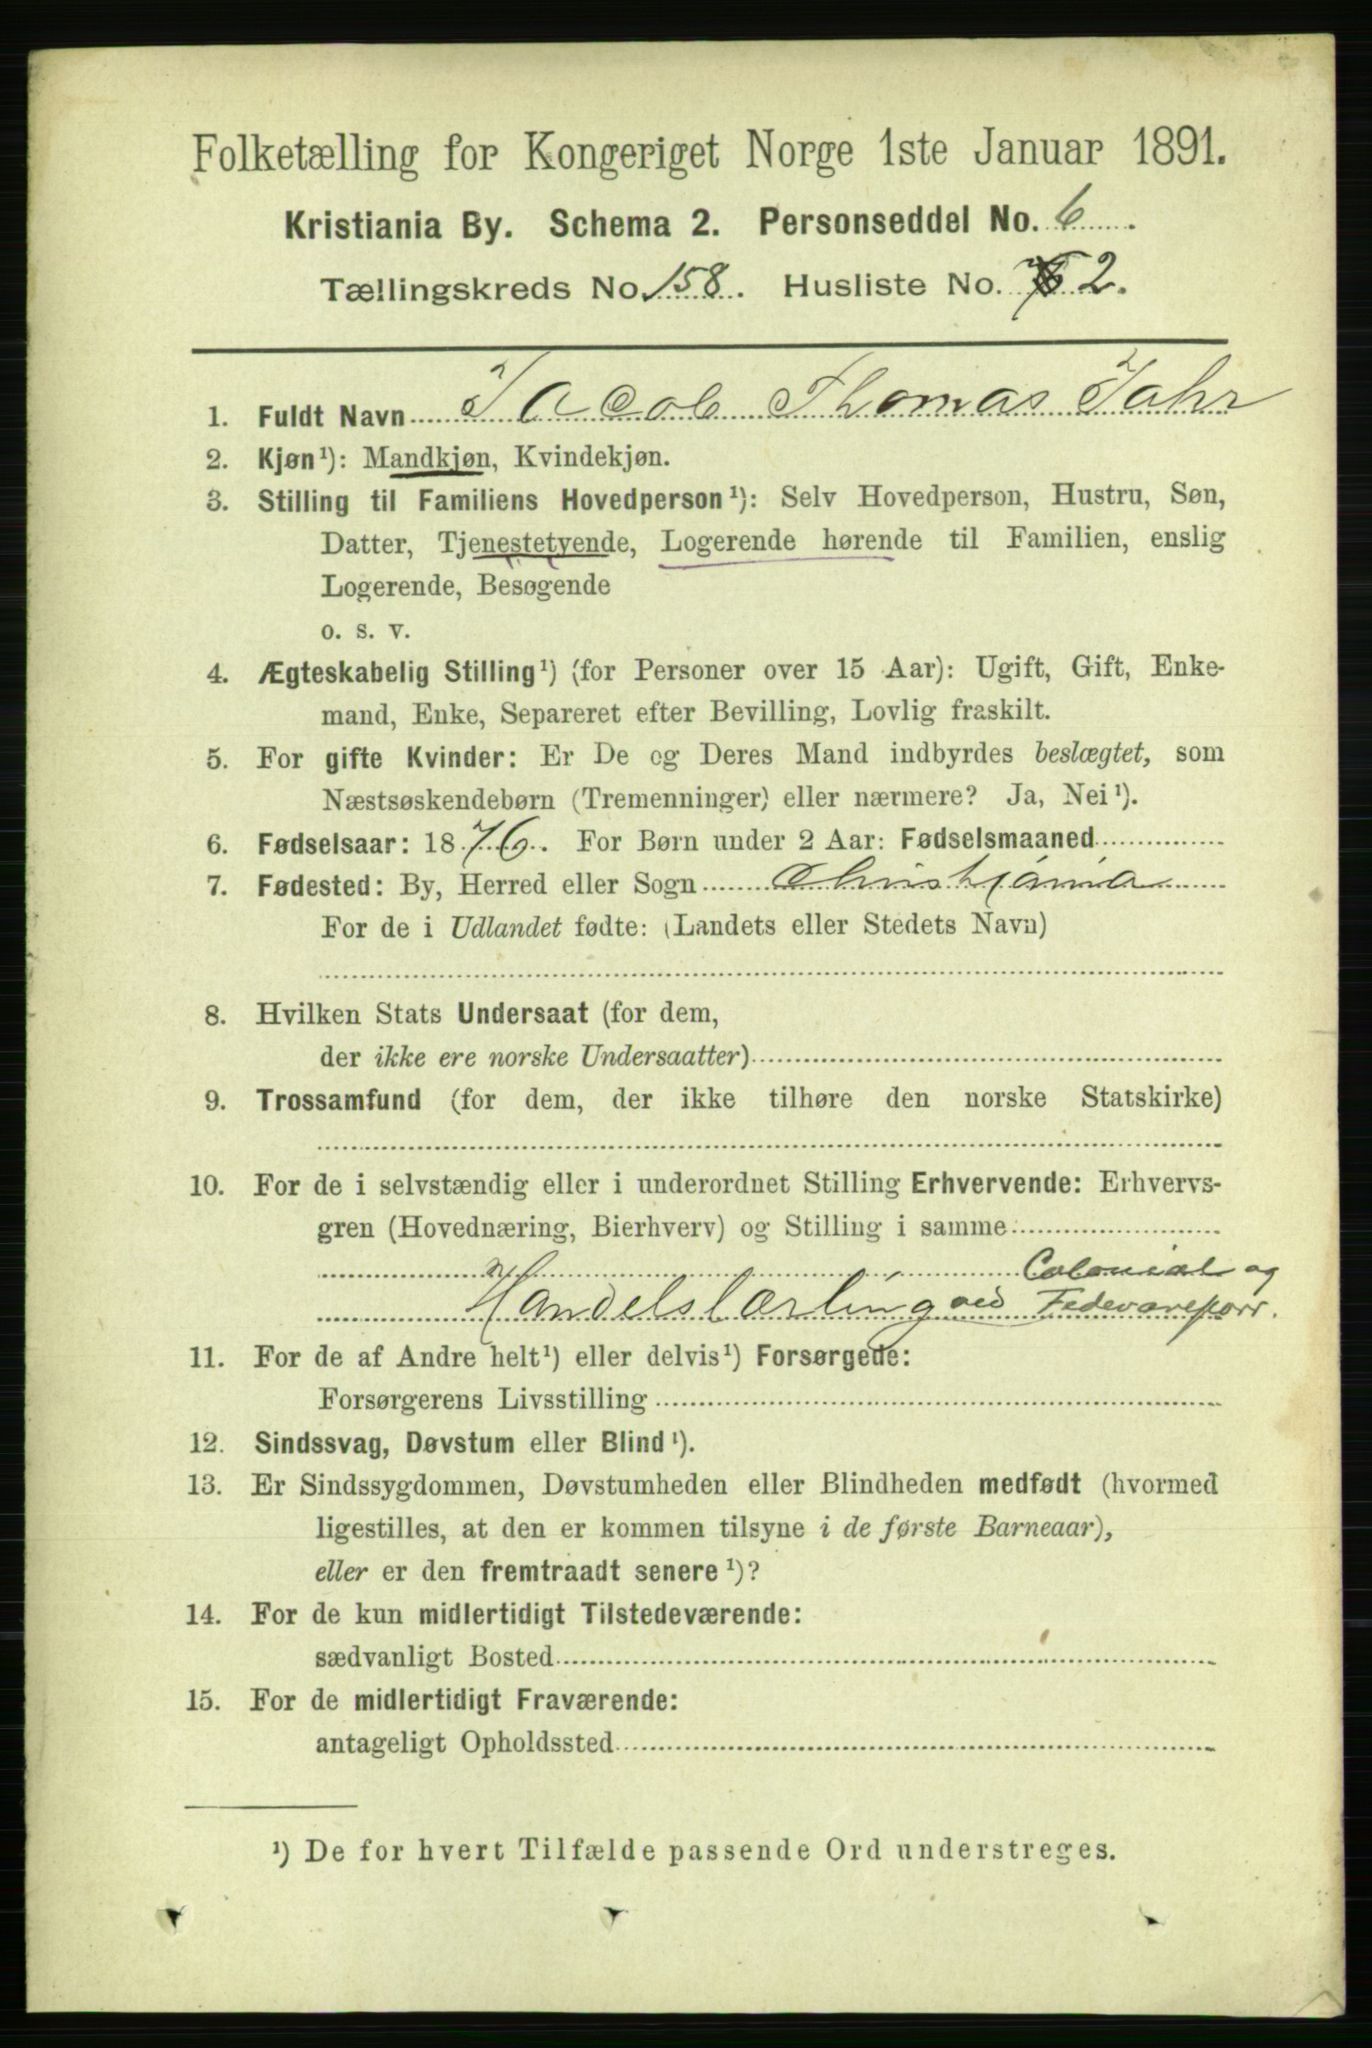 Folketælling for Kongeriget Norge 1ste Januar 1891.
Kristiania By. Schema 2. Personseddel No. 6.
Tællingskreds No. 158. Husliste No. 2.
1. Fuldt Navn Jacob Thomas Jahr
2. Kjøn¹): Mandkjøn, Kvindekjøn.
3. Stilling til Familiens Hovedperson¹): Selv Hovedperson, Hustru, Søn,
Datter, Tjenestetyende, Logerende hørende til Familien, enslig
Logerende, Besøgende
o. s. v.
4. Ægteskabelig Stilling¹) (for Personer over 15 Aar): Ugift, Gift, Enke-
mand, Enke, Separeret efter Bevilling, Lovlig fraskilt.
5. For gifte Kvinder: Er De og Deres Mand indbyrdes beslægtet, som
Næstsøskendebørn (Tremenninger) eller nærmere? Ja, Nei¹).
6. Fødselsaar: 1876. For Børn under 2 Aar: Fødselsmaaned
7. Fødested: By, Herred eller Sogn Christjania
For de i Udlandet fødte: (Landets eller Stedets Navn)
8. Hvilken Stats Undersaat (for dem,
der ikke ere norske Undersaatter)
9. Trossamfund (for dem, der ikke tilhøre den norske Statskirke)
10. For de i selvstændig eller i underordnet Stilling Erhvervende: Erhvervs-
gren (Hovednæring, Bierhverv) og Stilling i samme
Colonial og
Handelslærling ved Fedevareforr.
11. For de af Andre helt¹) eller delvis¹) Forsørgede:
Forsørgerens Livsstilling
12. Sindssvag, Døvstum eller Blind¹).
13. Er Sindssygdommen, Døvstumheden eller Blindheden medfødt (hvormed
ligestilles, at den er kommen tilsyne i de første Barneaar),
eller er den fremtraadt senere¹)?
14. For de kun midlertidigt Tilstedeværende:
sædvanligt Bosted
15. For de midlertidigt Fraværende:
antageligt Opholdssted
¹) De for hvert Tilfælde passende Ord understreges.